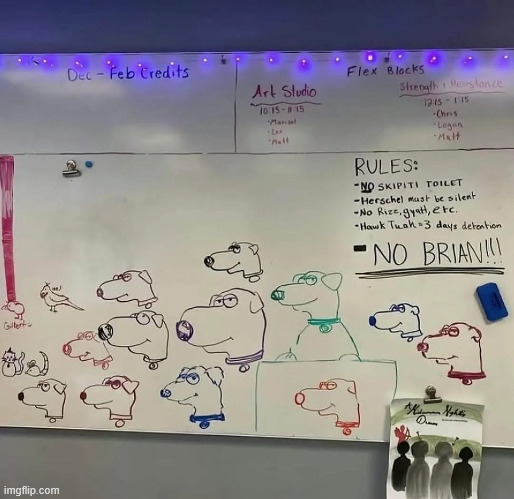 Dec - Feb Credits
Flex Blocks
Art Studio
10:15 - 11:15
Strength + Resistance
12:15 - 1:15
• Chris
• Logan
• Matt
• Matt
RULES:
- NO SKIPITI TOILET
- Herschel must be silent
- No Rizz, gyatt, etc.
- Hawk Tuah = 3 days detention
- NO BRIAN!!!
Dream
imgflip.com